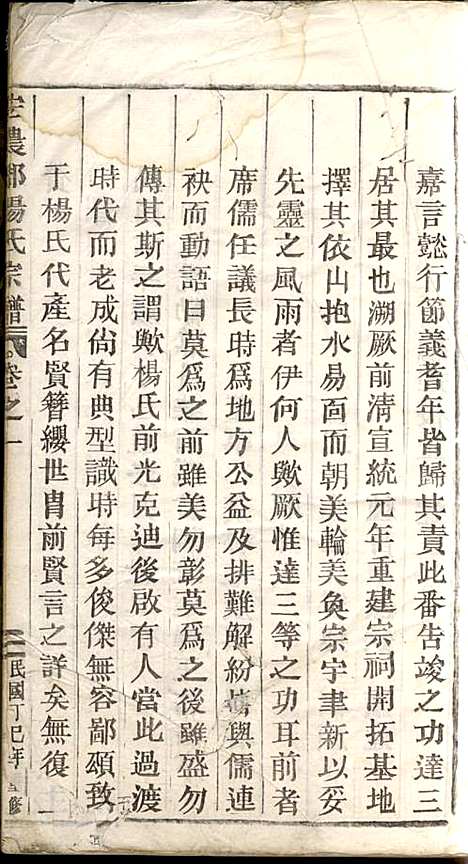 嘉言懿行節義耆年皆歸其責此番告竣之功達三
居其最也溯厥前清宣統元年重建宗祠開拓基地
擇其依山抱水易面而朝美輪美奐宗宇聿新以妥
先靈之風雨者伊何人歟厥惟達三等之功耳前者
席儒任議長時爲地方公益及排難解紛嘗與儒連
袂而動語曰莫爲之前雖美勿彰莫爲之後雖盛勿
傳其斯之謂歟楊氏前光克迪後啟有人當此過渡
時代而老成尙有典型識時每多俊傑無容鄙頌致
于楊氏代產名賢簪纓世胄前賢言之詳矣無復
農郡楊氏宗譜 卷之一 一 民國丁巳年 修